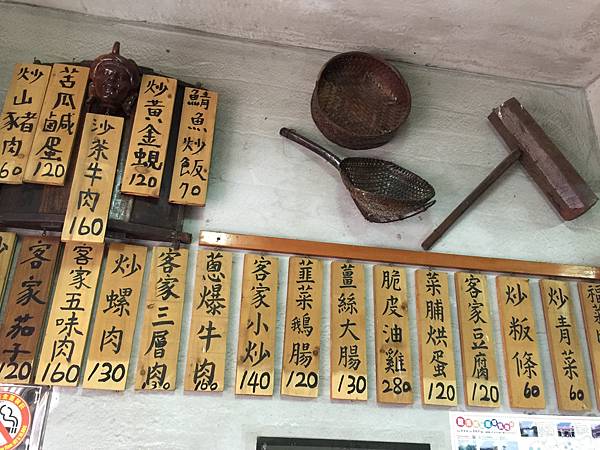 炒山豬肉 60
苦瓜鹹蛋 120
沙茶牛肉 160
炒黃金蜆 120
鯖魚炒飯 70
客家茄子 120
客家五味肉 160
炒螺肉 130
客家三層肉
蔥爆牛肉 160
客家小炒 140
韮菜鵝腸 120
薑絲大腸 130
脆皮油雞 280
菜脯烘蛋 120
客家豆腐 120
炒粄條 60
炒青菜 60